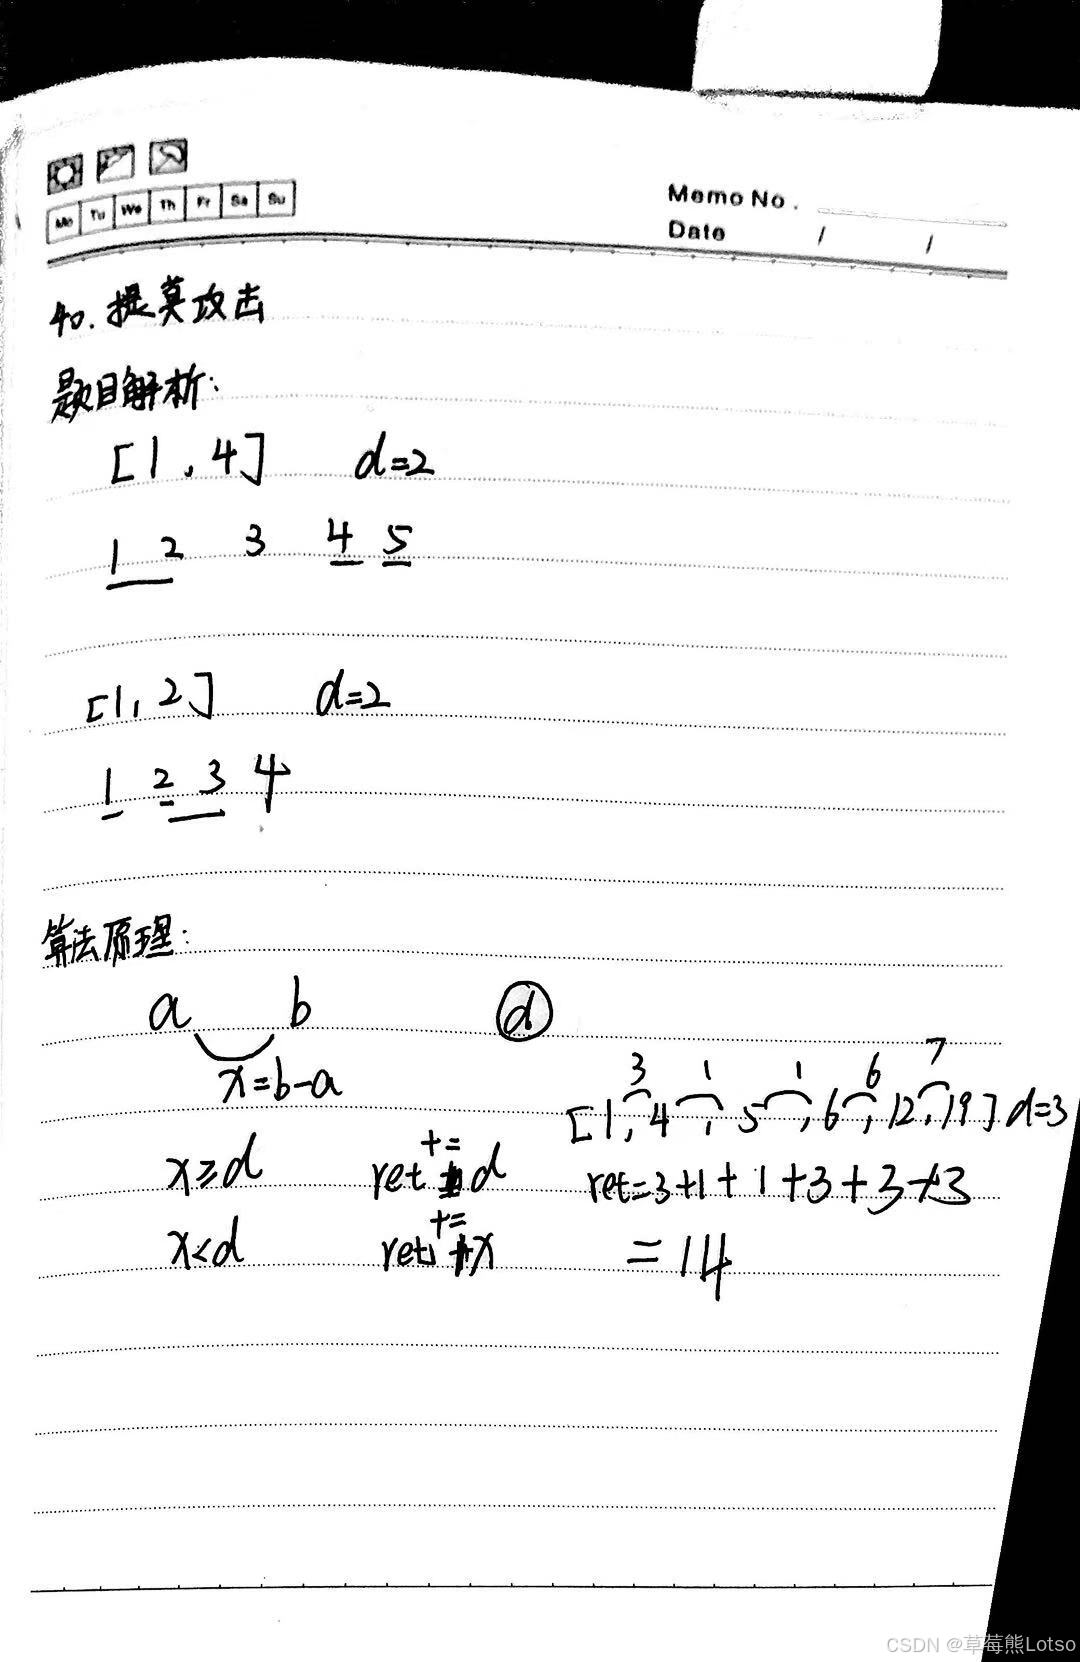 Mo Tu We Th Fr Sa Su
Memo No.
Date / /
40. 提莫攻击
题目解析:
[1, 4] d=2
1 2 3 4 5
[1, 2] d=2
1 2 3 4
算法原理:
a b d
x=b-a
3 1 1 6 7
[1, 4, 5, 6, 12, 19] d=3
x≥d ret += d
ret=3+1+1+3+3+3
x<d ret += x
=14
CSDN @草莓熊Lotso